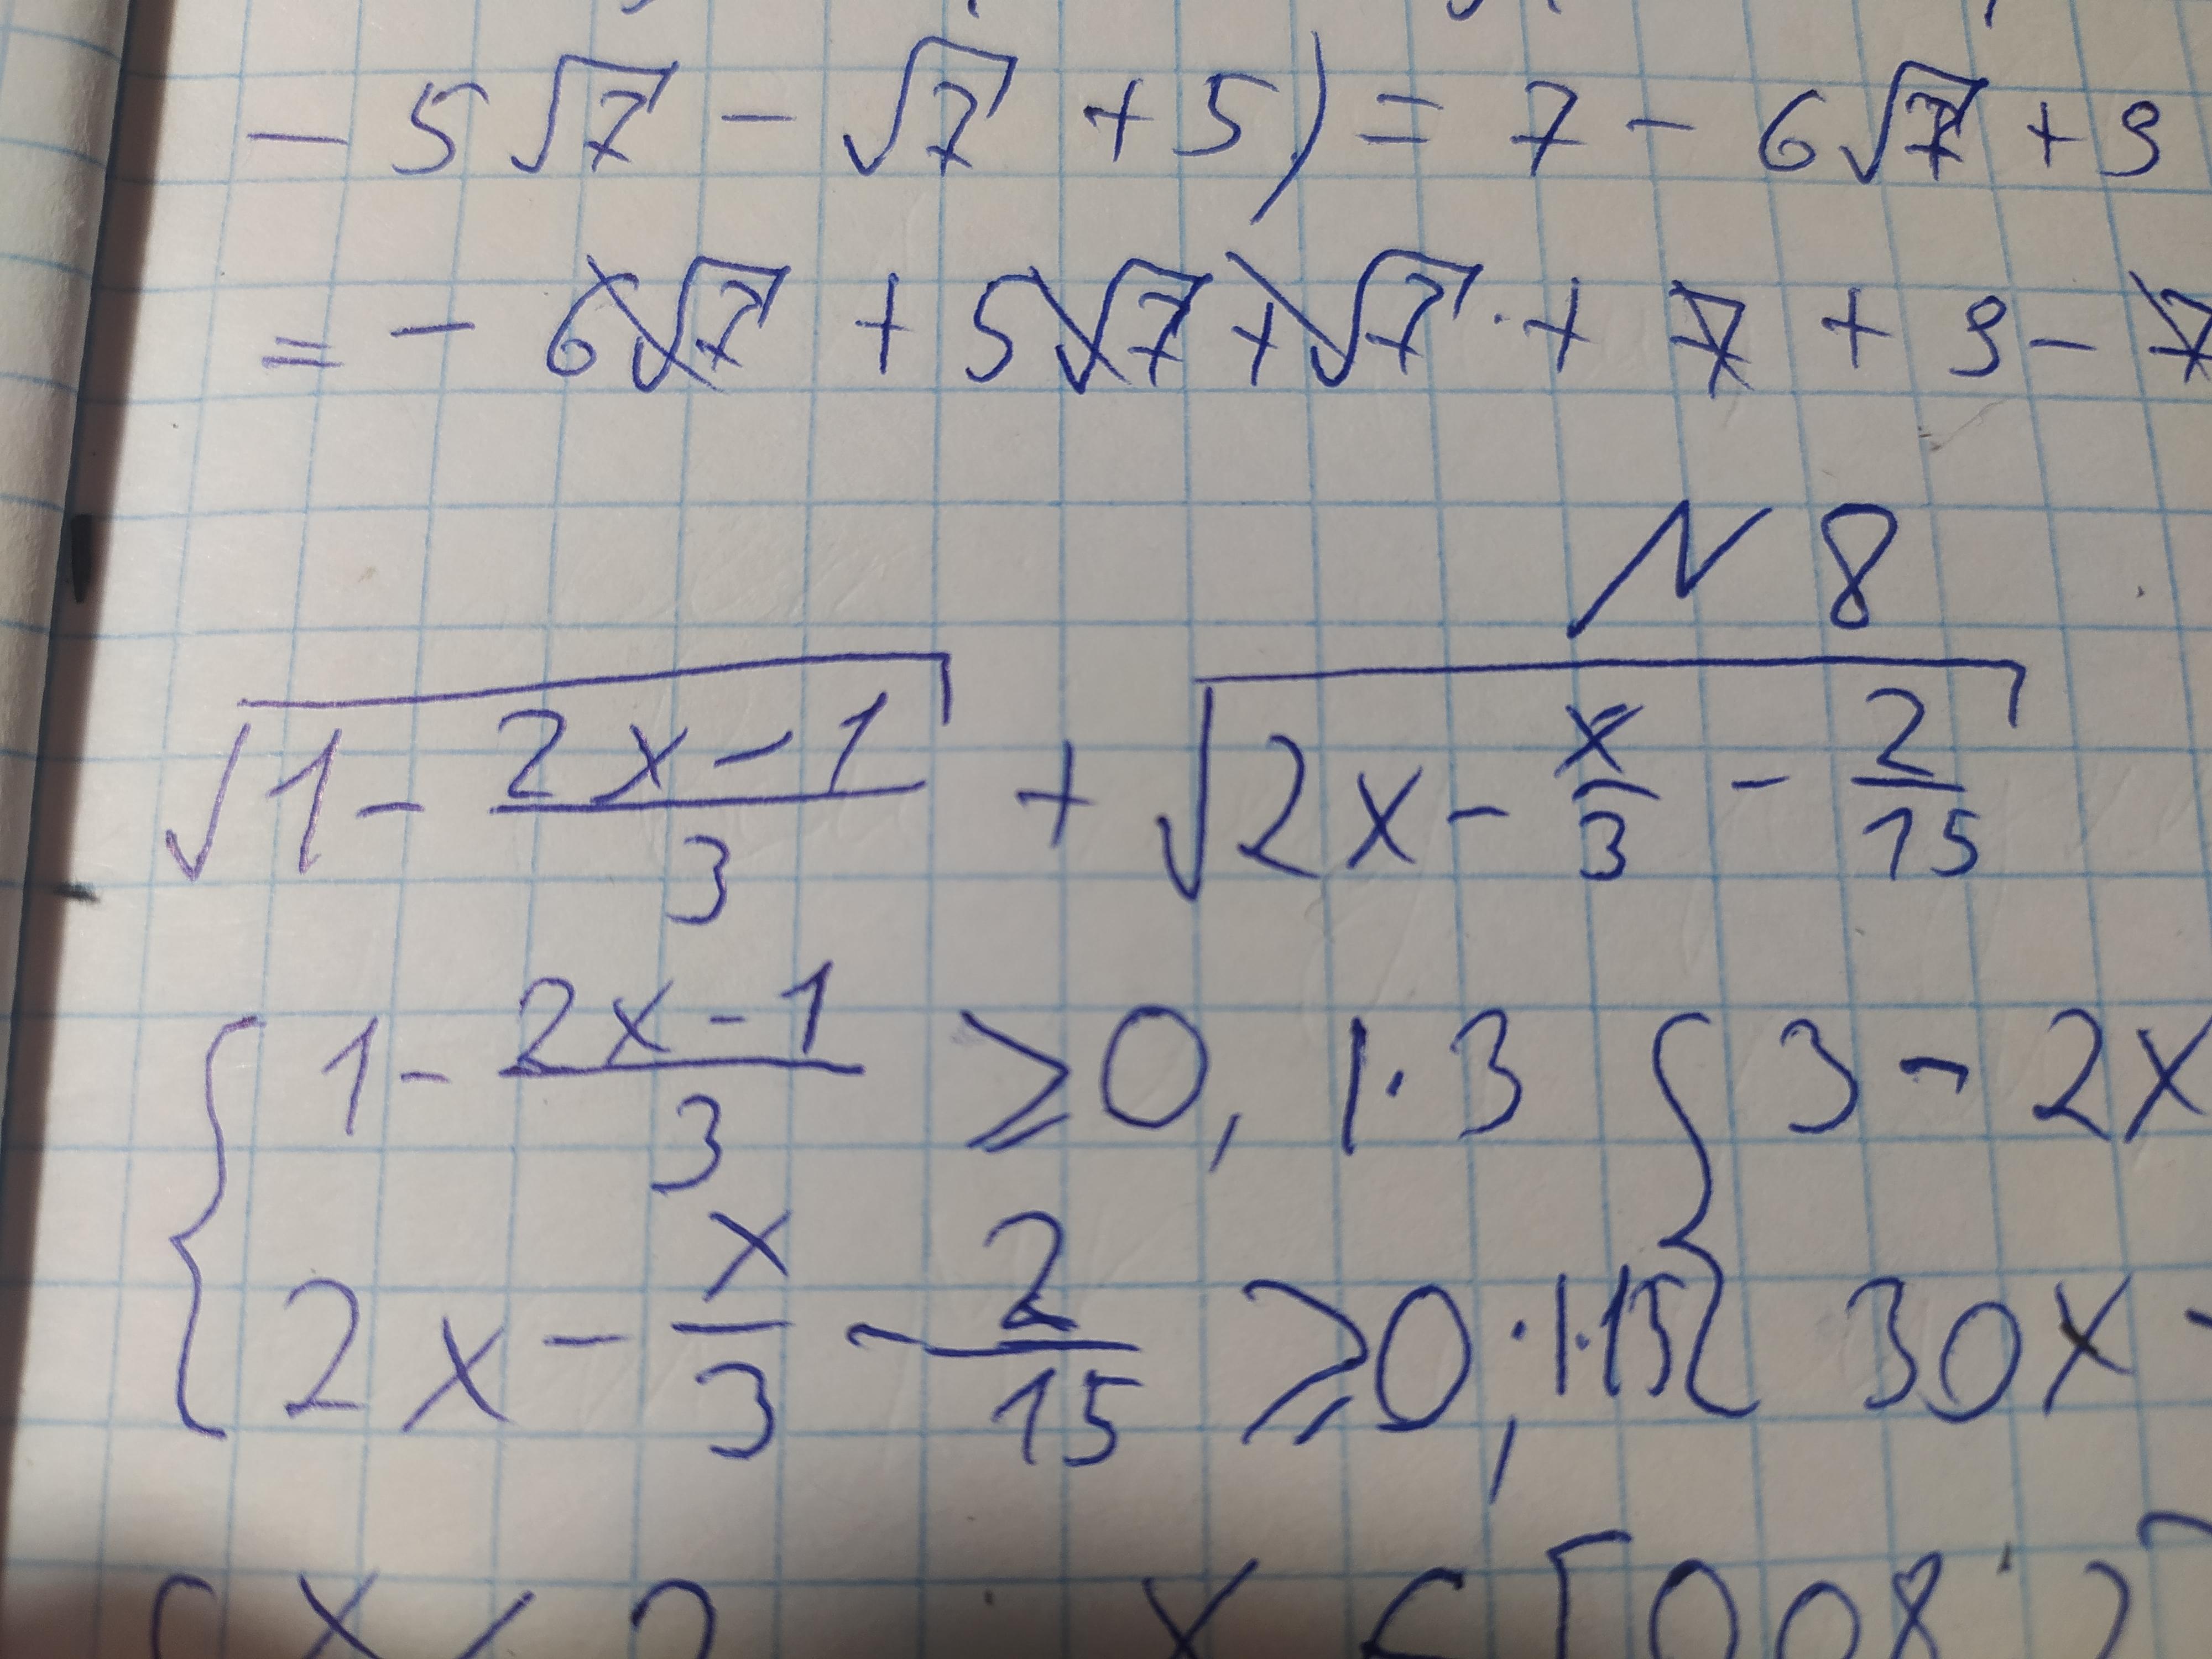 - 5√7 - √7 + 5) = 7 - 6√7 + 9
= - 6√7 + 5√7 + √7 + 7 + 9 - 7
N 8
√(1 - (2x-1)/3) + √(2x - x/3 - 2/15)
{ 1 - (2x-1)/3 ≥ 0, |·3 { 3 - 2x
2x - x/3 - 2/15 ≥ 0, |·15 { 30x -
{ x ≤ 2 x ∈ [0,08; 2]